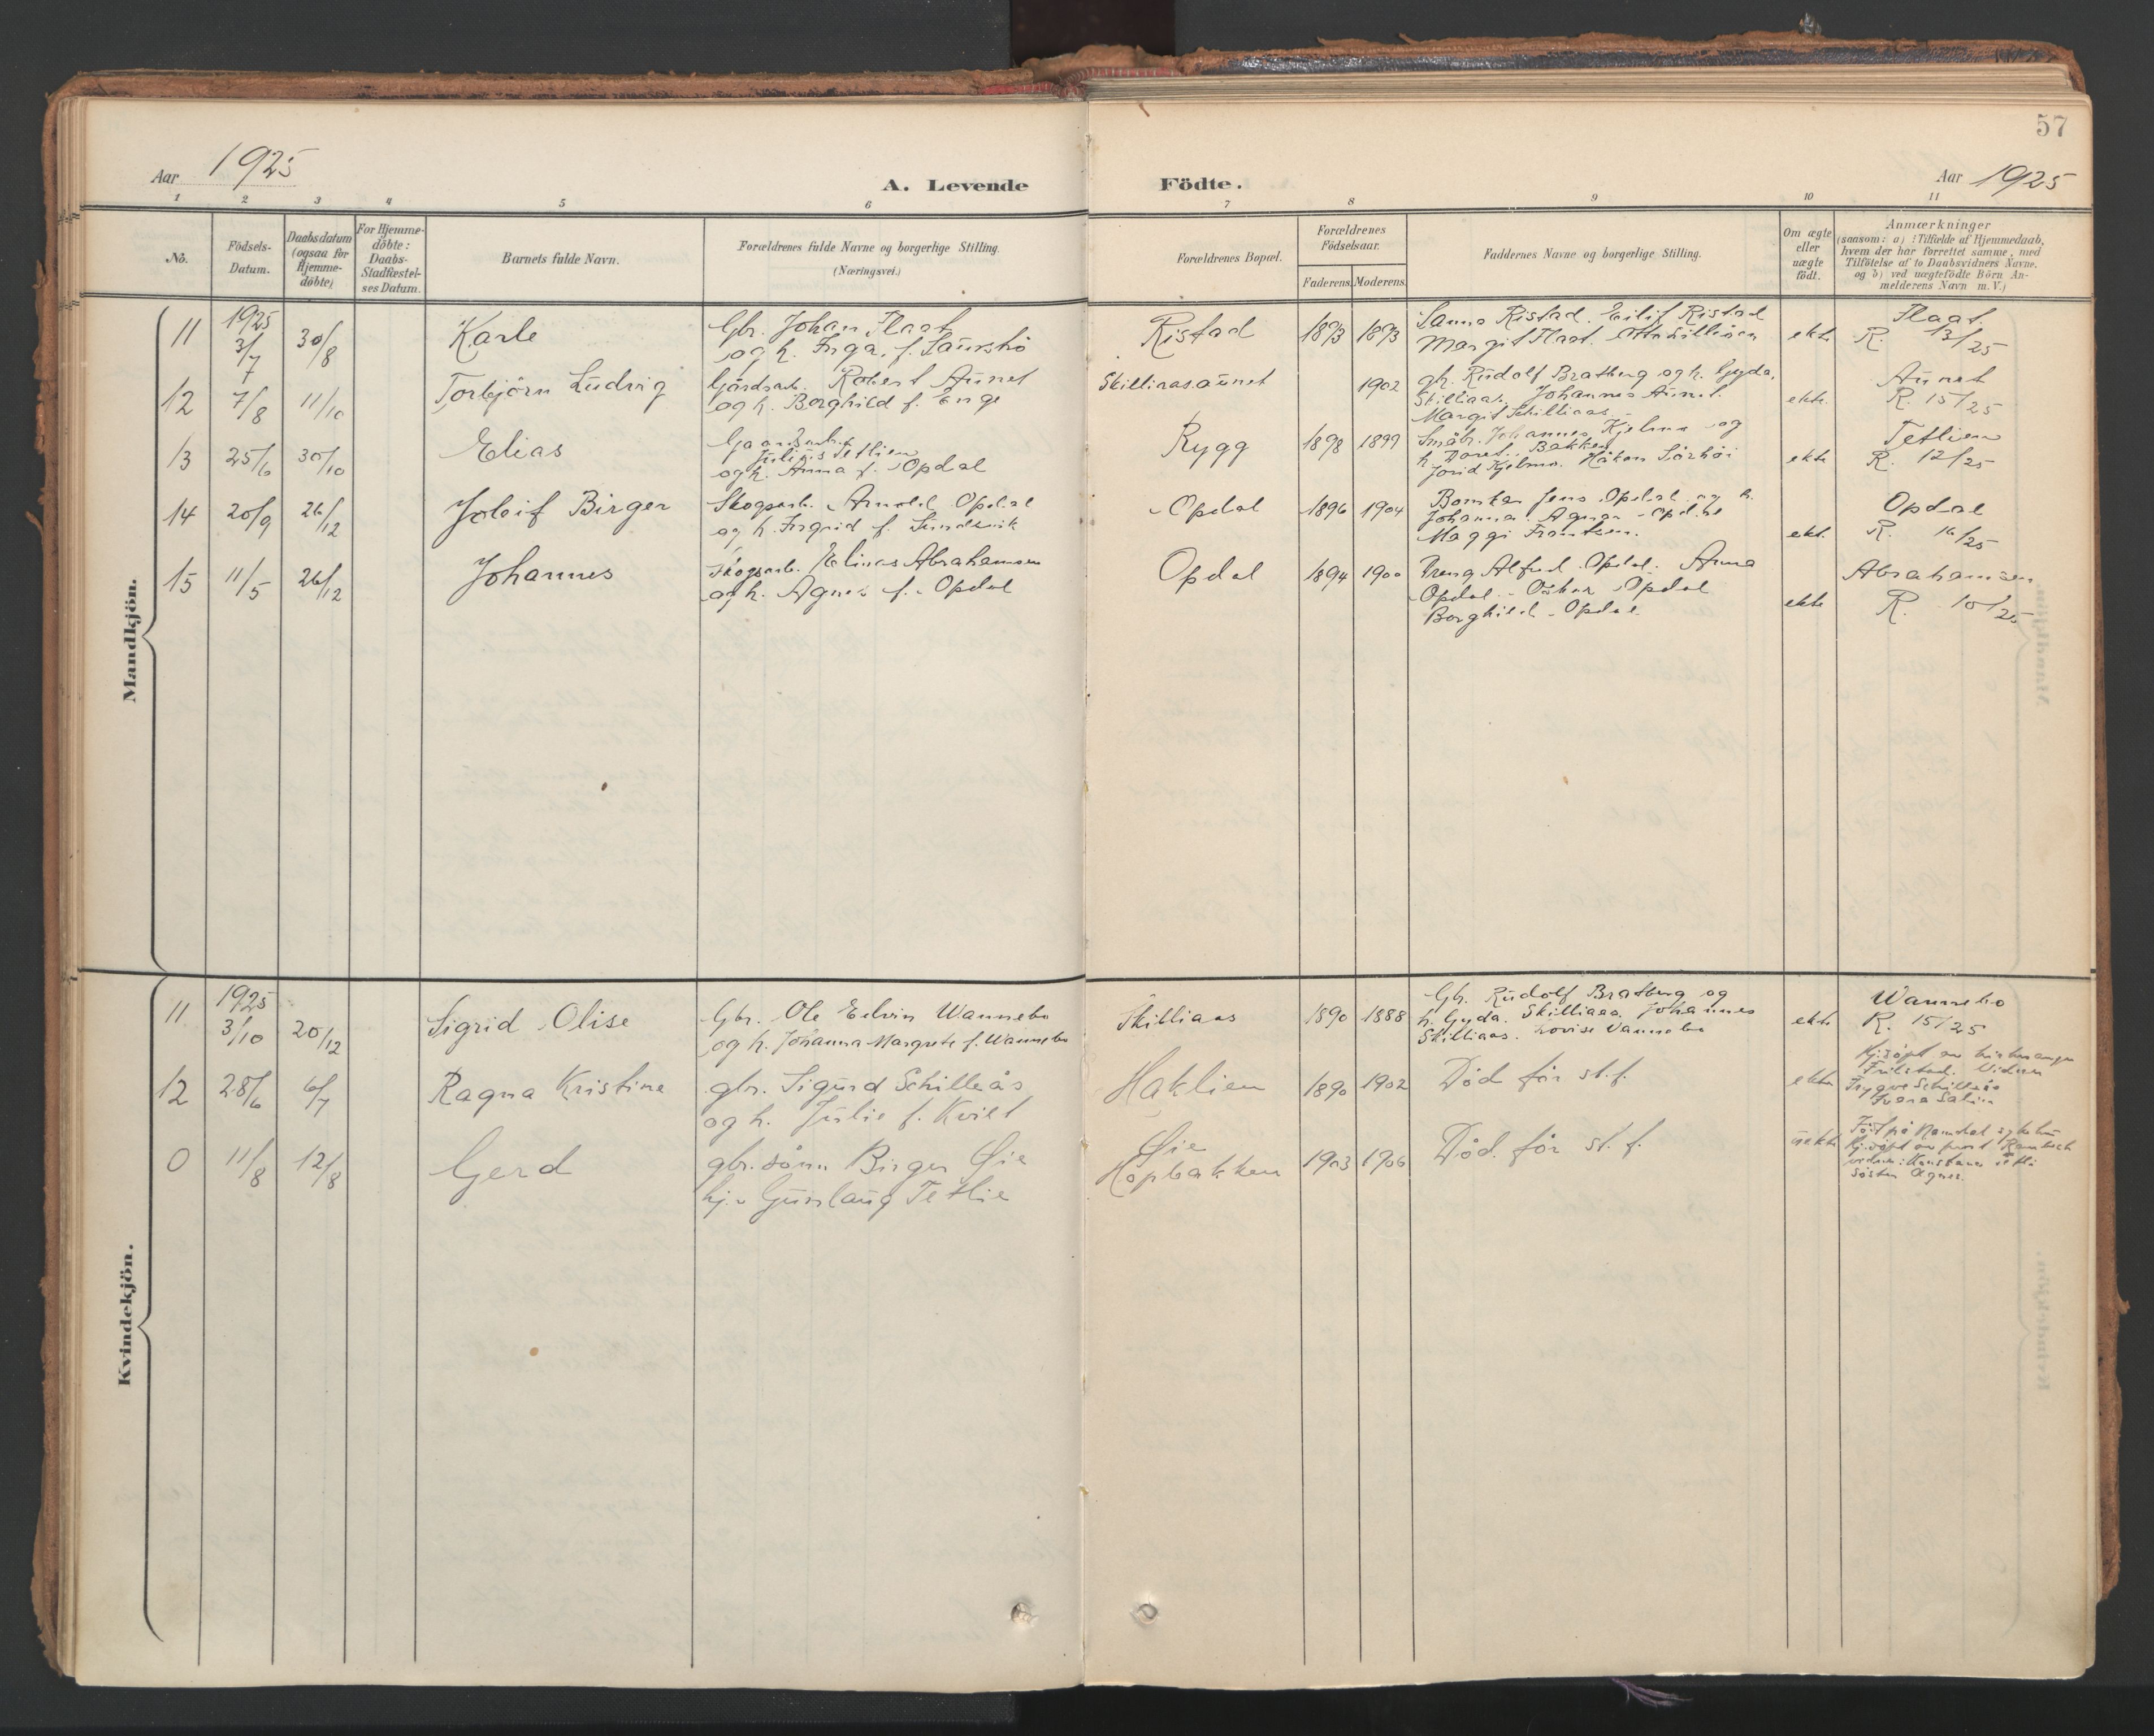 57
Aar 1925
A. Levende Födte.
Aar 1925
1 2 3 4 5 6 7 8 9 10 11
No.
Födsels-Datum.
Daabsdatum (ogsaa for Hjemme-döbte)
For Hjemme-döbte: Daabs-Stadfæstel-ses Datum.
Barnets fulde Navn.
Forældrenes fulde Navne og borgerlige Stilling.
(Næringsvei.)
Forældrenes Bopæl.
Forældrenes Födselsaar.
Faderens. Moderens.
Faddernes Navne og borgerlige Stilling.
Om ægte eller uægte födt.
Anmærkninger
(saasom: a) : Tilfælde af Hjemmedaab,
hvem der har forrettet samme, med
Tilföielse af to Daabsvidners Navne.
og b) ved uægtefödte Börn An-
melderens Navn m. V.)
Mandkjön.
11 1925 3/7 30/8 Karle
Gbr. Johan Flaat
og h. Inga f.
Ristad 1893 1893
Sanna Ristad. Eilif Ristad
Margit Flaat.
ekte
Flaat
R. 13/25
12 7/8 11/10 Torbjörn Ludvig
Gårdsarb. Robert Aunet
og h. Borghild f. Enge
Skilliaasaunet 1902
gbr. Rudolf Bratberg og h. Gyda,
Skilliaas. Johannes Aunet.
Margit Skilliaas.
ekte.
Aunet
R. 15/25
13 25/6 30/10 Elias
Gaardsarb.
Julius Tetlien
og h. Anna f. Opdal
Rygg 1898 1899
Småbr. Johannes Kjelmo og
h. Doret. Bakken
Jorid Kjelmo. Håkon
ekte
Tetlien
R. 12/25
14 20/9 26/12 Joleif Birger
Skogsarb. Arnold Opdal
og h. Ingrid f.
Opdal 1896 1904
Jens Opdal og h.
Johanna. Agnar Opdal
Maggi Frantsen.
ekt.
Opdal
R. 16/25
15 11/5 26/12 Johannes
Skogsarb. Elinas Abrahamsen
og h. Agnes f. Opdal
Opdal 1894 1900
Alfred Opdal. Anna
Opdal. Oskar Opdal
Borghild Opdal
ekte
Abrahamsen
R. 10/25
Kvindekjön.
11 1925 3/10 20/12 Sigrid Olise
Gbr. Ole Edvin Wannebo
og h. Johanna Margrete f. Wannebo
Skilliaas 1890 1888
Gbr. Rudolf Bratberg og
h. Gyda. Skilliaas. Johannes
Skilliaas. Lovise Vannebo
ekte
Wannebo
R. 15/25
12 28/6 6/7 Ragna Kristine
gbr. Sigurd Schilleås
og h. Julie f. Kvitt
Haklien 1890 1902
Död för st.f.
ekte
Trygve Schilleås
0 11/8 12/8 Gerd
gbr.sönn Birger Øie
hj.v Gunlaug Tetlie
Øie
Hopbakken 1903 1906
Död för st. f.
uekte
Föt på Namdal sykehus
söster Agnes.